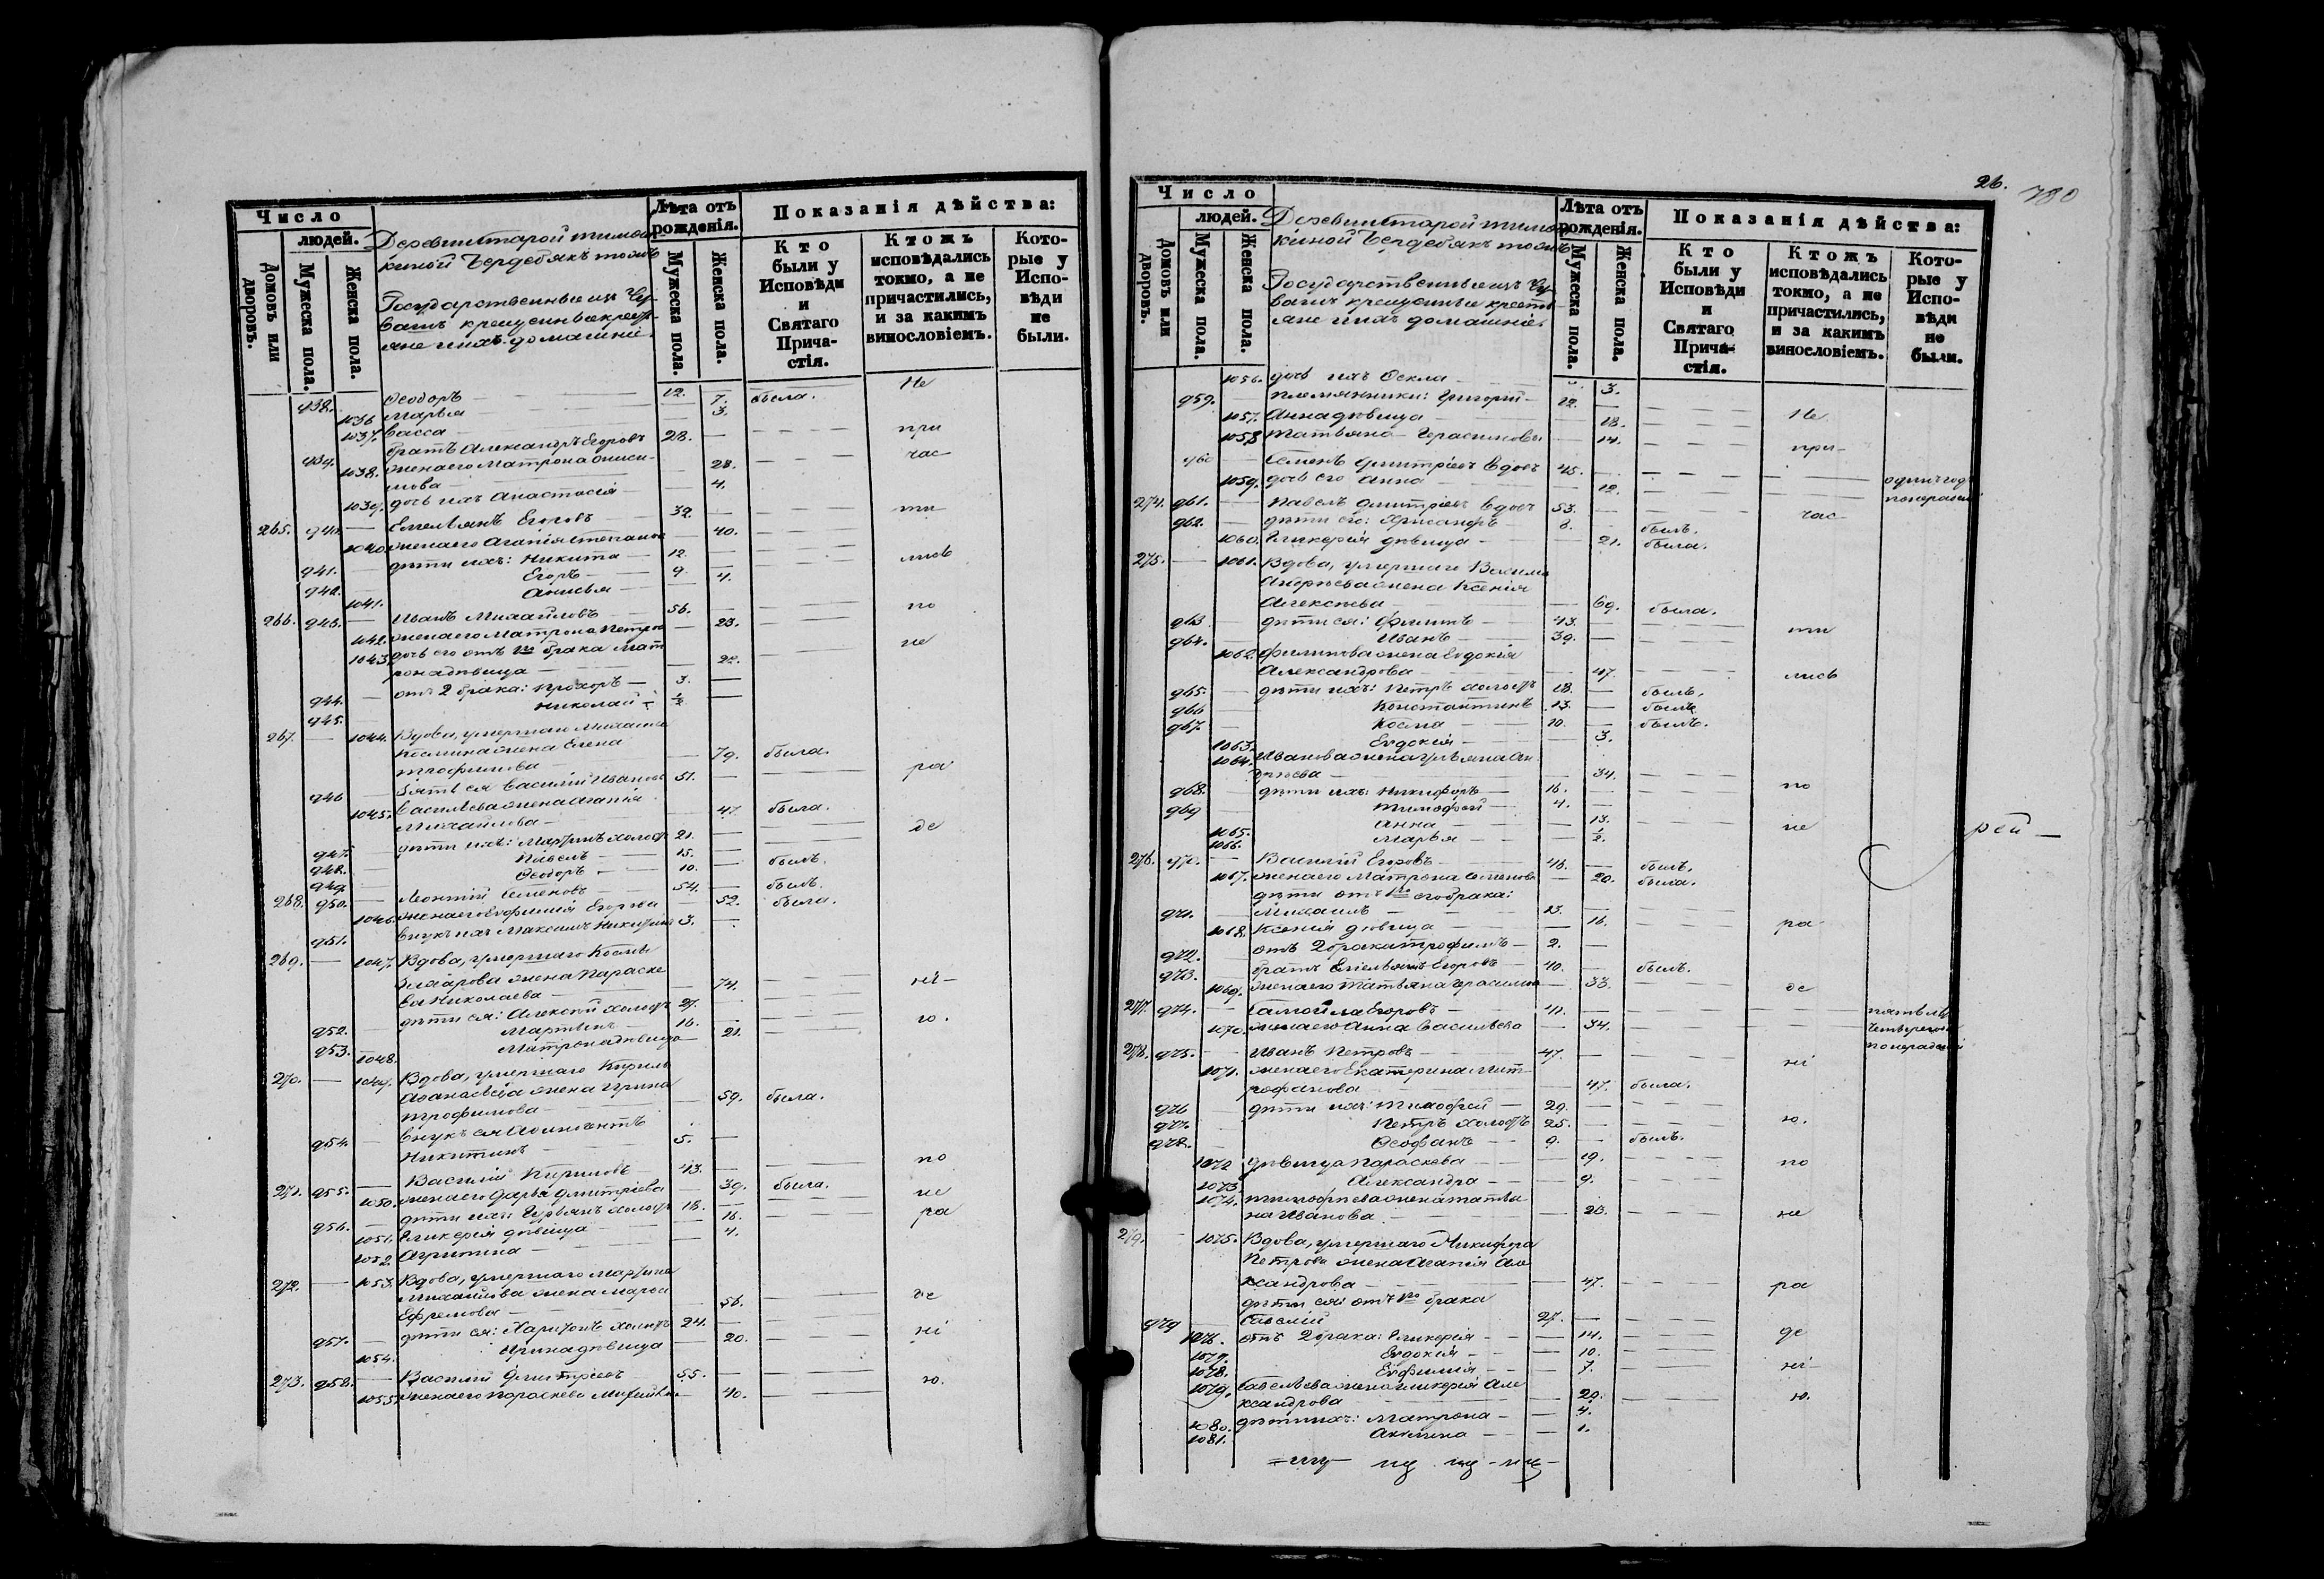 Число
людей.
Домовъ или дворовъ.
Мужеска пола.
Женска пола.
Лѣта отъ рожденія.
Мужеска пола.
Женска пола.
Показанія дѣйства:
Кто были у Исповѣди и Святаго Прича-стія.
Ктожъ исповѣдались токмо, а не причастились, и за какимъ винословіемъ.
Кото-рые у Испо-вѣди не были.
Государственные изъ Чу-
вашъ крещеные крестья-
яне и ихъ домашніе.
938. Ѳеодоръ 12. Не
1036 Марья 7. была.
1037. Васса 3.
братъ Александръ Егоровъ 28. при
939.
1038. жена его Матрона Аниси-
мова 28. час
1039. дочь ихъ Анастасія 4.
265. 940. Емельянъ Егоровъ 39. ти
1040 жена его Агапія Степанова 40.
941. дѣти ихъ: Никита 12.
942. Егоръ 9. лись
1041. Анисья 4.
266. 943. Иванъ Михайловъ 56. по
1042. жена его Матрона Петрова 23.
1043. дочь его отъ 1го брака Мат
рона дѣвица 22. не
944. отъ 2 брака: Прохоръ 3.
945. Николай ½
267. 1044. Вдова, умершаго Михаила
Козмина жена Елена
Трофимова 79. была.
946 Зять ея Василій Ивановъ 51. ра
1045. Васильева жена Агапія
Михайлова 47. была.
947. дѣти ихъ: Мартинъ холост 21. де
948. Павелъ 15.
949. Ѳеодоръ 10. былъ.
268. 950. Леонтій Семеновъ 54. былъ.
1046. жена его Евфимія Егорова 52. была.
951. внукъ ихъ Максимъ Никитинъ 3.
269. 1047. Вдова, умершаго Козмы
Захарова жена Параске
ва Николаева 74. ні-
952. дѣти ея: Алексій холост 27.
953. Мартынъ 16. ю.
1048. Матрона дѣвица 21.
270. 1049. Вдова, умершаго Кирила
Аѳанасьева жена Ирина
Трофимова 59. была.
954. внукъ ея
Никитинъ 5.
271. 955. Василій Кириловъ 43. по
1050. жена его Дарья Дмитріева 39. была.
956. дѣти ихъ: Гурьянъ холост 18. не
1051. Гликерія дѣвица 16. ра
1052. Агрипина 4.
272. 1053. Вдова, умершаго Мартина
Михайлова жена Марья
Ефремова 56. де
957. дѣти ея: Харитонъ холост 24.
1054. Ирина дѣвица 20. ні
273. 958. Василій Дмитріевъ 55.
1055. жена его Параскева 40. ю.
26.
780
Число
людей.
Домовъ или дворовъ.
Мужеска пола.
Женска пола.
Лѣта отъ рожденія.
Мужеска пола.
Женска пола.
Показанія дѣйства:
Кто были у Исповѣди и Святаго Прича-стія.
Ктожъ исповѣдались токмо, а не причастились, и за какимъ винословіемъ.
Кото-рые у Испо-вѣди не были.
Государственные изъ Чу-
вашъ крещеные крестья-
яне и ихъ домашніе.
1056. дочь ихъ Ѳекла 3.
959. племянники: Григорій 12.
1057. Анна дѣвица 18. Не
1058 Татьяна Герасимовы 14. при-
960 Семенъ Дмитріевъ вдовъ 45.
1059. дочь его Анна 12. одинъ годъ
274. 961. Павелъ Дмитріевъ вдовъ 53. час-
962. дѣти его: 8. былъ.
1060. Гликерія дѣвица 21. была.
275. 1061. Вдова, умершаго Василія
Андреева жена Ксенія
Алексѣева 69. была.
963 дѣти ея: Филипъ 43. ти
964. Иванъ 39.
1062. Филипова жена Евдокія
Александрова 47. лись
965. дѣти ихъ: Петръ холост 18. былъ.
966 Константинъ 13. былъ.
967. Козма 10. былъ.
1063. Евдокія 3.
1064. Иванова жена Ульяна Ан
дреева 34.
968. дѣти ихъ: Никифоръ 16. по
969 Тимофей 4.
1065. Анна 13. не
1066. Марья ½
рей
276. 970. Василій Егоровъ 46. былъ.
1067. жена его Матрона Семенова 20. была.
дѣти отъ 1го его брака:
971. Михаилъ 13.
1068. Ксенія дѣвица 16. ра-
972. отъ 2 брака Трофимъ 2.
973. братъ Емельянъ Егоровъ 40. былъ.
1069. жена его Татьяна Герасимова 33. де
277. 974. Самойла Егоровъ 41. пять лѣтъ
1070. жена его Анна Васильева 34.
278. 975. Иванъ Петровъ 47. ні
1071. жена его Екатерина Мит-
рофанова 47. была.
976 дѣти ихъ: Тимофей 29.
977. Петръ холост 25. ю.
978. Ѳеофанъ 9. былъ.
1072 дѣвица Параскева 19. по
1073. Александра 9.
1074. Тимофеева жена Татья
на Иванова 28. не
279. 1075. Вдова, умершаго Никифора
Петрова жена Агапія Але
ксандрова 47. ра
дѣти ея: отъ 1го брака
979 Савелій 27.
1076. отъ 2 брака: Гликерія 14. де
1077. Евдокія 10.
1078. Евфимія 7. ні
1079. Савельева жена Гликерія Але
ксандрова 29. ю.
1080. дѣти ихъ: Матрона 4.
1081. Акилина 1.